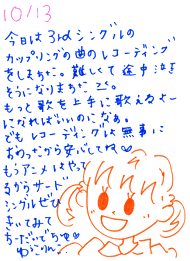 10/13
今日は3rdシングルの
カップリングの曲のレコーディング
をしました。難しくて途中泣き
そうになりました
もっと歌を上手に歌えるよー
になればいいのになぁ。
でもレコーディングは無事に
おわったから安心してね♡
もうアニメはやって
るからサード
シングルぜひ
きいてみて
くださいです